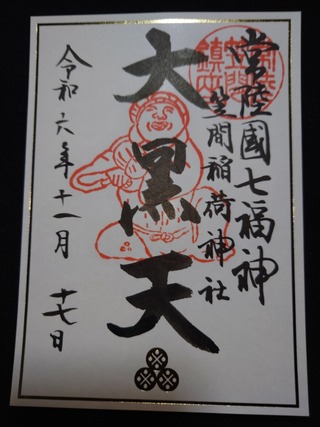 常陸國七福神
笠間稲荷神社
大黒天
令和六年十一月
十七日